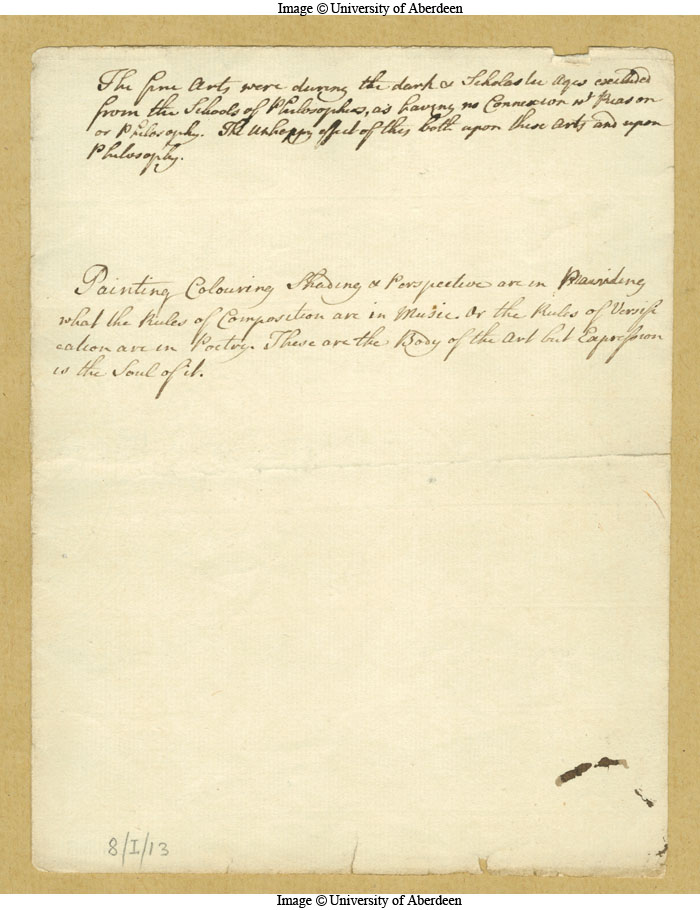 Image © University of Aberdeen
The fine Arts were during the dark & Scholastic Ages excluded
from the Schools of Philosophers, as having no Connexion wt Reason
or Philosophy. The unhappy effect of this both upon these Arts and upon
Philosophy.
Painting Colouring Shading & Perspective are in
what the Rules of Composition are in Music. Or the Rules of Versifi
cation are in Poetry. These are the Body of the Art but Expression
is the Soul of it.
8/I/13
Image © University of Aberdeen